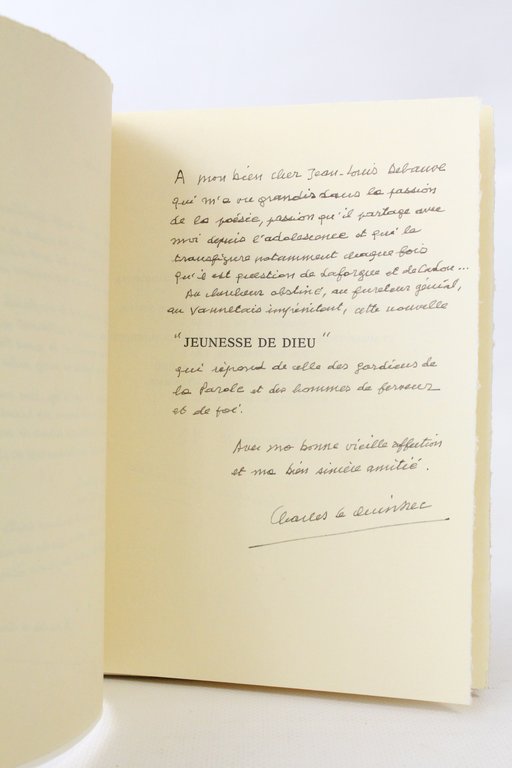 A mon bien cher Jean-Louis Debauve
qui m'a vu grandir dans la passion
de la poésie, passion qu'il partage avec
moi depuis l'adolescence et qui le
transfigure notamment chaque fois
qu'il est question de Laforgue et de Cadou...
Au chercheur obstiné, au fureteur génial,
au Vannetais impénitent, cette nouvelle
"JEUNESSE DE DIEU"
qui répond de celle des gardiens de
la Parole et des hommes de ferveur
et de foi.
Avec ma bonne vieille affection
et ma bien sincère amitié.
Charles Le Quintrec